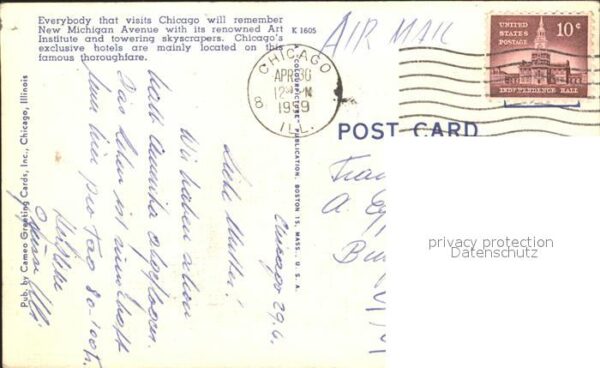 Everybody that visits Chicago will remember
New Michigan Avenue with its renowned Art
Institute and towering skyscrapers. Chicago's
exclusive hotels are mainly located on this
famous thoroughfare.
K 1605
AIR MAIL
CHICAGO
APR 30
12 M
1959
8
ILL.
UNITED
STATES
POSTAGE
10¢
INDEPENDENCE HALL
POST CARD
Pub. by Cameo Greeting Cards, Inc., Chicago, Illinois
"COLOURPICTURE" PUBLICATION, BOSTON 15, MASS., U.S.A.
Chicago 29.4.
Liebe Mutter!
Wir haben schon
halb Amerika abgeflogen.
Das Leben ist
pro Tag 80-100
Frau
A.
privacy protection
Datenschutz